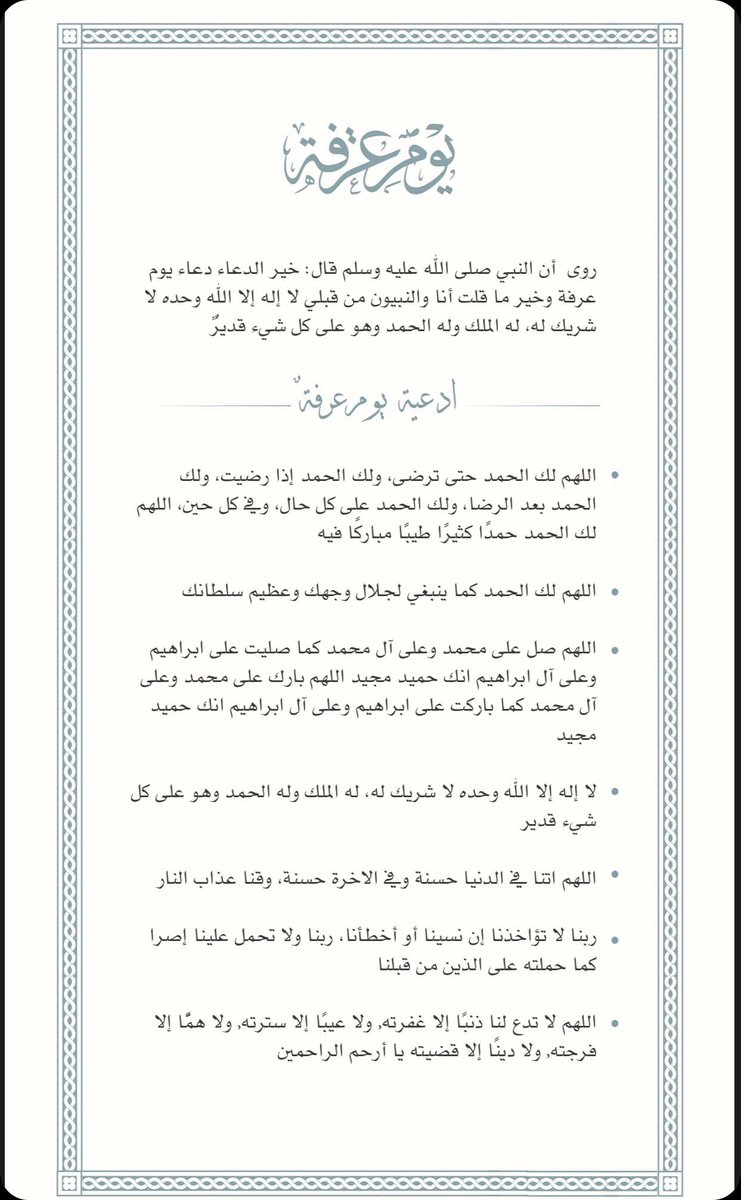 يوم عرفة
روى أن النبي صلى الله عليه وسلم قال: خير الدعاء دعاء يوم
عرفة وخير ما قلت أنا والنبيون من قبلي لا إله إلا الله وحده لا
شريك له، له الملك وله الحمد وهو على كل شيء قديرٌ
ادعية يوم عرفة
اللهم لك الحمد حتى ترضى، ولك الحمد إذا رضيت، ولك
الحمد بعد الرضا، ولك الحمد على كل حال، وفي كل حين، اللهم
لك الحمد حمدًا كثيرًا طيبًا مباركًا فيه
اللهم لك الحمد كما ينبغي لجلال وجهك وعظيم سلطانك
اللهم صل على محمد وعلى آل محمد كما صليت على ابراهيم
وعلى آل ابراهيم انك حميد مجيد اللهم بارك على محمد وعلى
آل محمد كما باركت على ابراهيم وعلى آل ابراهيم انك حميد
مجيد
لا إله إلا الله وحده لا شريك له، له الملك وله الحمد وهو على كل
شيء قدير
اللهم اتنا في الدنيا حسنة وفي الاخرة حسنة، وقنا عذاب النار
ربنا لا تؤاخذنا إن نسينا أو أخطأنا، ربنا ولا تحمل علينا إصرا
كما حملته على الذين من قبلنا
اللهم لا تدع لنا ذنبًا إلا غفرته, ولا عيبًا إلا سترته, ولا همًّا إلا
فرجته, ولا دينًا إلا قضيته يا أرحم الراحمين